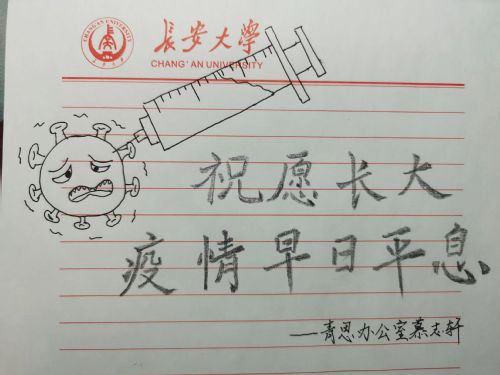 長安大学
CHANG'AN UNIVERSITY
CHANG'AN UNIVERSITY
祝愿长大
疫情早日平息
——青思办公室慕志轩